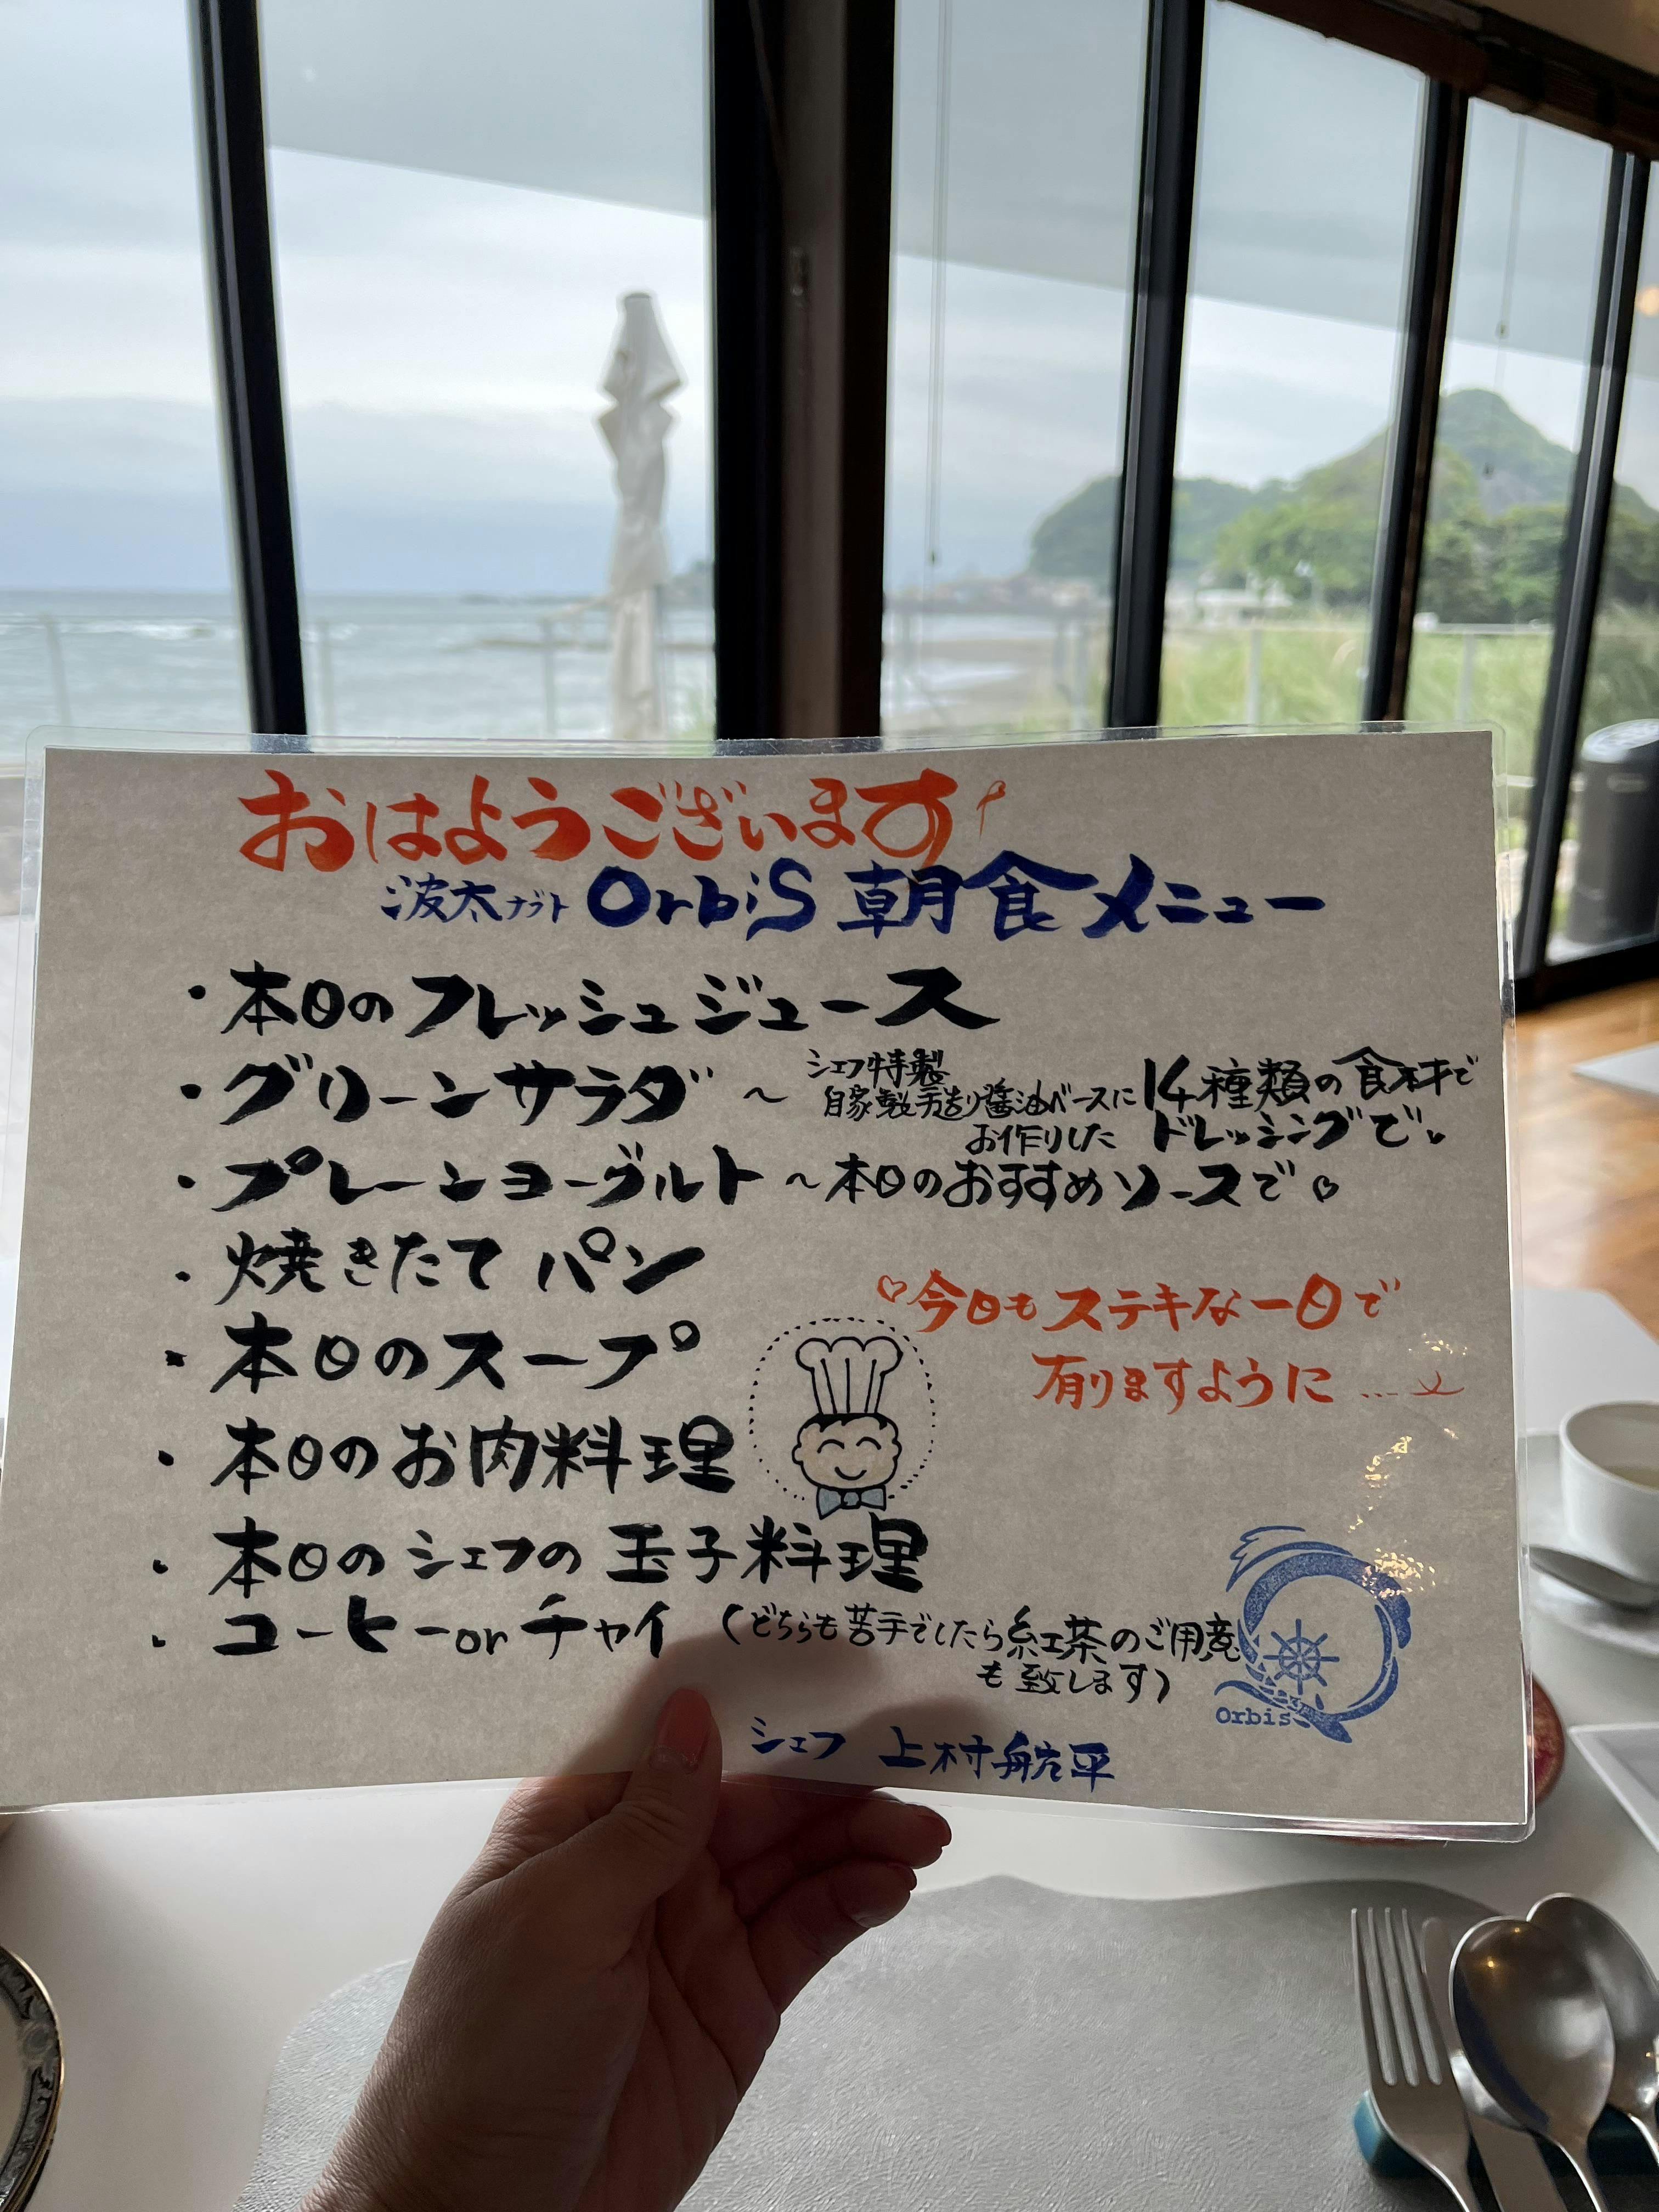 おはようございます
波太ナブト Orbis 朝食メニュー
・本日のフレッシュジュース
・グリーンサラダ ～ シェフ特製
自家製手造り醤油ベースに14種類の食材で
お作りした ドレッシングで
・プレーンヨーグルト ～本日のおすすめソースで♡
・焼きたてパン
♡今日もステキな一日で
有りますように…
・本日のスープ
・本日のお肉料理
・本日のシェフの玉子料理
・コーヒーorチャイ (どちらも苦手でしたら紅茶のご用意
も致します)
Orbis
シェフ 上村航平